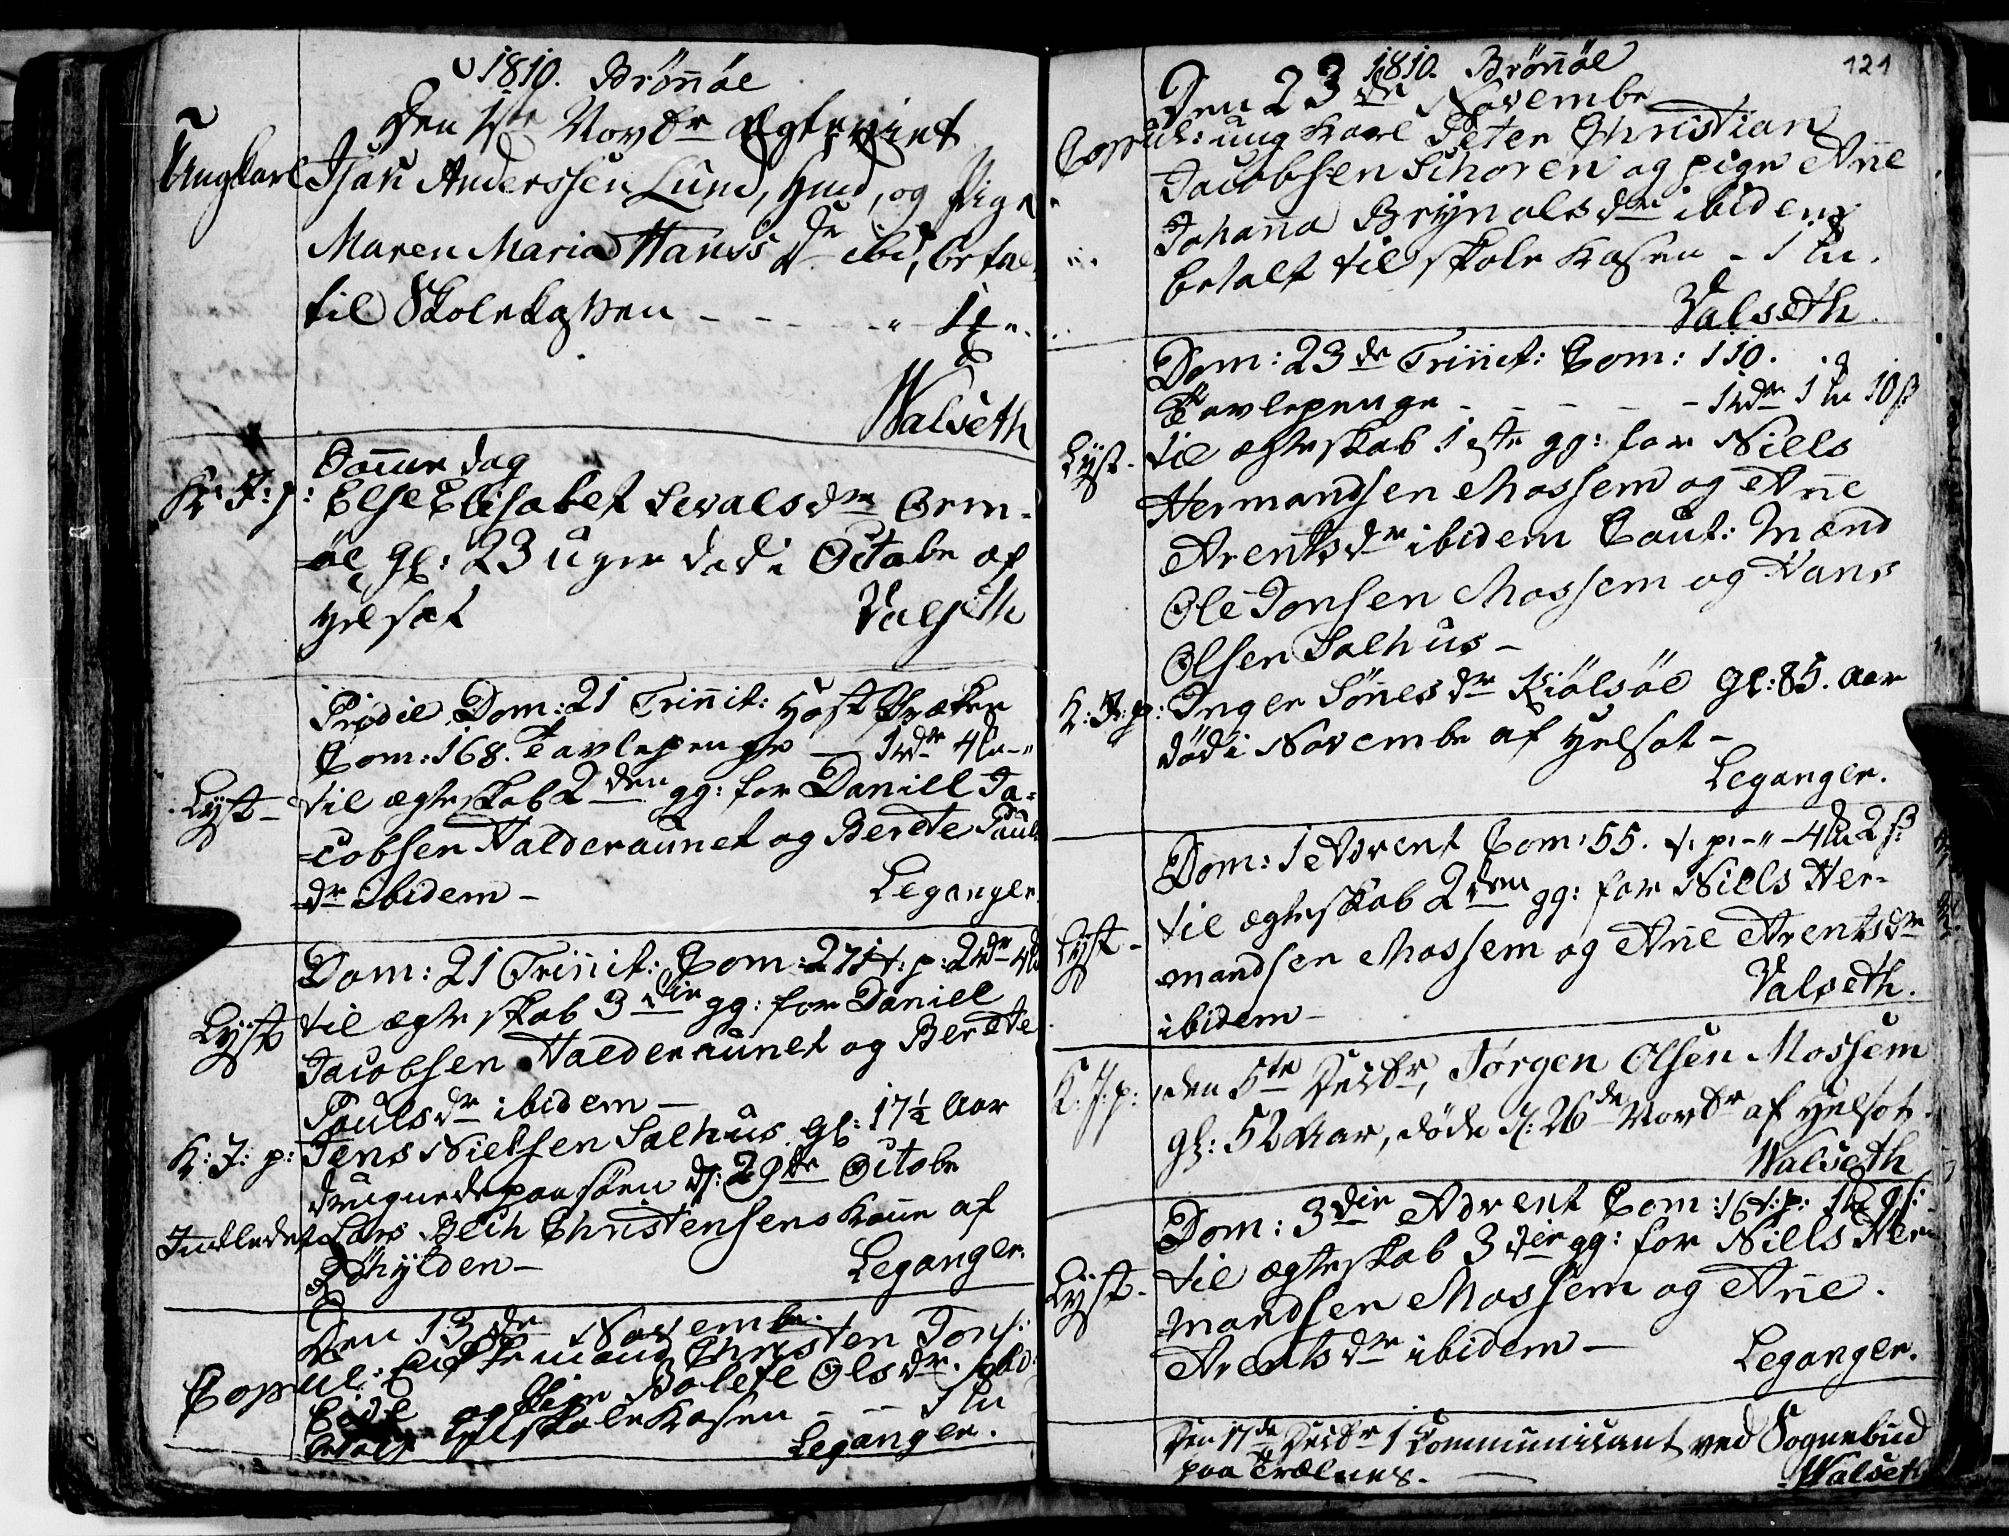 1810. Brönöe
Den 1ste Novbr Egteviet
Ungkarl Isach Anderssen Lund, hmd, og Pige
Maren Maria Hansdr ibid, betalt
til Skolekassen - - - - " 1 " .
Walseth
Samme dag
K: J: p: Else Elisabet Sevalsdr Orm-
öe gl: 23 uger død i Octobr af
hilsot Valseth
Prødie Dom: 21 Trinit: Høst
Com: 168. Tavlepenge — 1rdr 4
Lyst - til ægteskab 2den gg: for Daniell Ja-
cobsen Halderaunet og Berete Pauls
dr ibidem - Leganger
Dom: 21 Trinit: Com: 271 t: p: 2rdr 4
Lyst til ægteskab 3die gg: for Daniell
Jacobsen Halderaunet og Berete
Paulsdr ibidem —
K: J: p: Jens Nielsen Salhus gl: 17½ Aar
druknede paa søen d: 29de Octobr
Indledet Lars Beck Christensens kone af
Hylden - Leganger.
Den 13de Novembr.
Copul: Enkemand Christen Jons:
Eide og Pige Bolete Olsdr. ibid:
betalt til skole kasen - - 1
Leganger.
1810. Brönöe 121
Den 23de Novembr
Copul: ung karl Peter Christian
Jacobsen Schoren og pige Ane
Johana Brynolsdr ibidem
betalt til skole kasen - 1
Valseth.
Dom: 23de Trinit: Com: 110.
Tavlepenge - - - - - 1rdr 1 10 ß
Lyst - til ægteskab 1ste gg: for Niells
Hermandsen Mossem og Ane
Arentsdr ibidem Caut: Mænd
Ole Jonsen Mossem og Hans
Olsen Salhus -
K: J: p: Inger Sönesdr Kiölsöe gl: 85. aar
død i Novembr af hilsot -
Leganger.
Dom: 1 Advent Com: 55. t: p: - " - 4 2 ß
Lyst - til ægteskab 2den gg: for Niells Her-
mandsen Mossem og Ane Arentsdr
ibidem - Valseth.
K: J: p: den 5te Decbr, Jørgen Olsen Mossem
gl: 52 Aar, døde d: 26de Novbr af hilsot.
Walseth
Dom: 3die Advent Com: 16 t: p: 1
Lyst - til ægteskab 3die gg: for Niells Her-
mandsen Mossem og Ane
Arentsdr ibidem — Leganger.
Den 17de Decbr 1 Communicant ved Sognebud
paa Trælnes. — Walseth